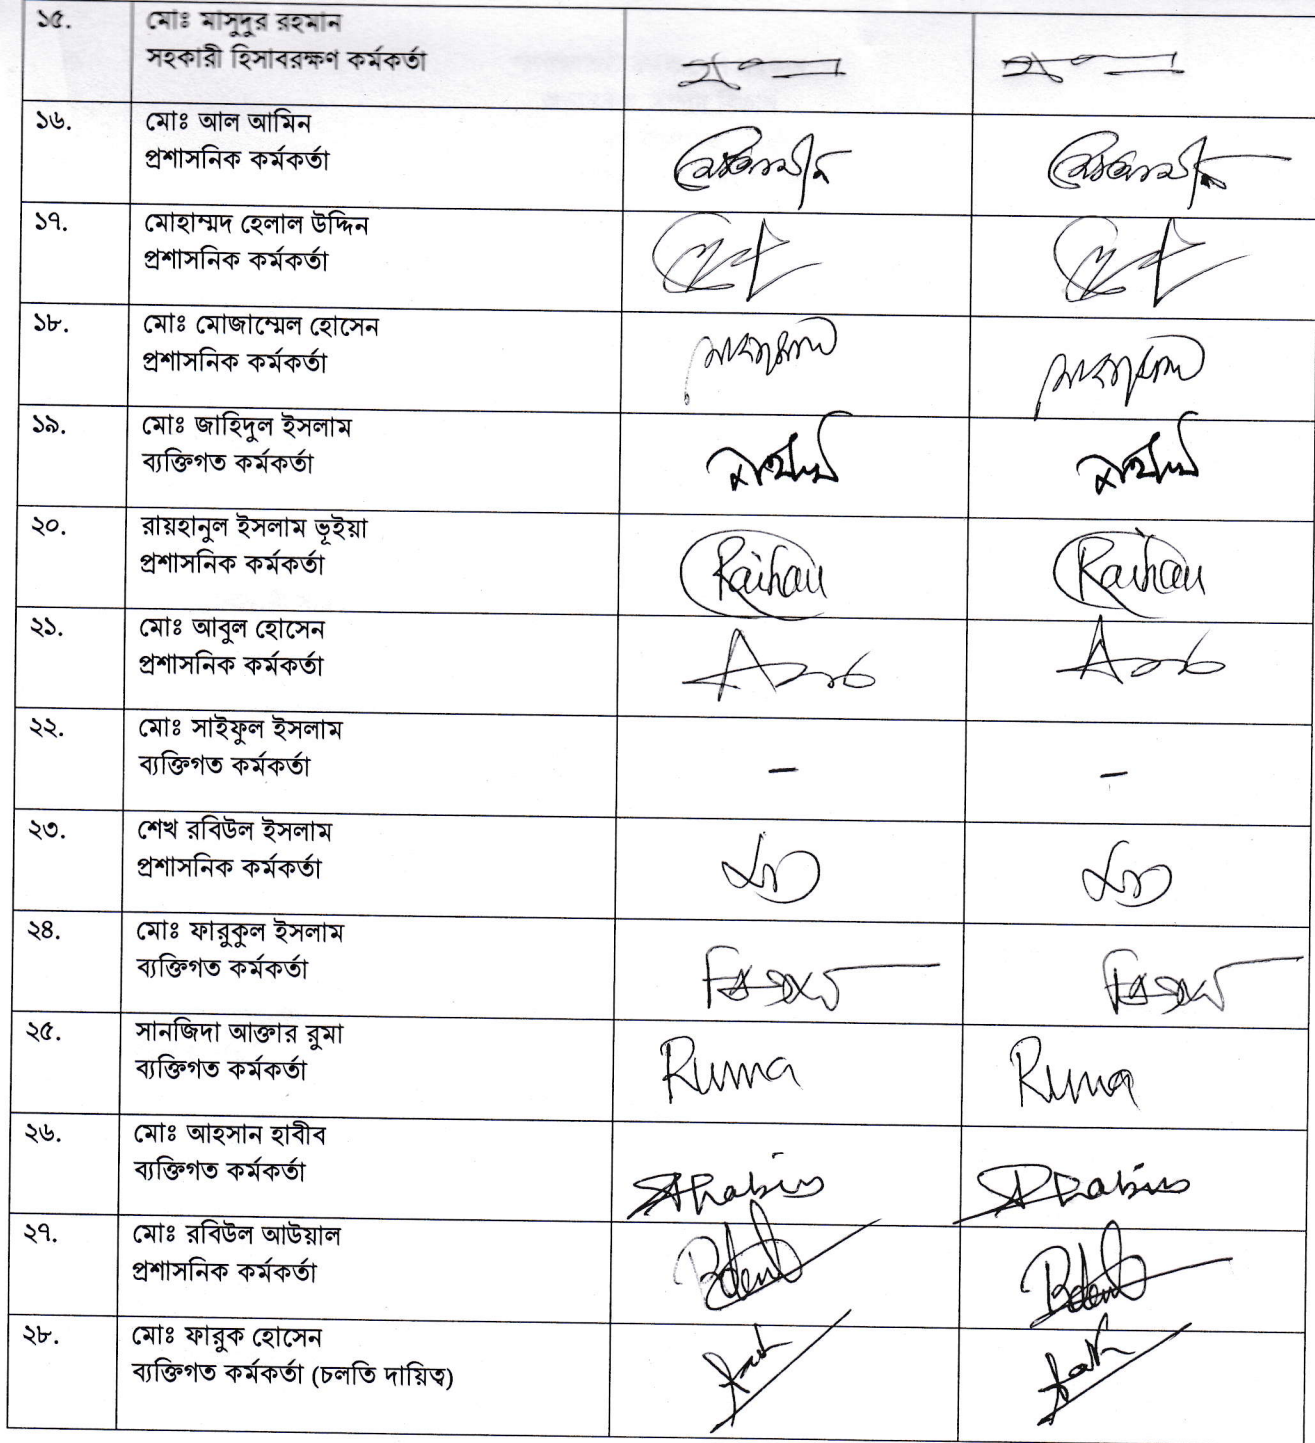 ১৫.
মোঃ মাসুদুর রহমান
সহকারী হিসাবরক্ষণ কর্মকর্তা
১৬.
মোঃ আল আমিন
প্রশাসনিক কর্মকর্তা
১৭.
মোহাম্মদ হেলাল উদ্দিন
প্রশাসনিক কর্মকর্তা
১৮.
মোঃ মোজাম্মেল হোসেন
প্রশাসনিক কর্মকর্তা
১৯.
মোঃ জাহিদুল ইসলাম
ব্যক্তিগত কর্মকর্তা
২০.
রায়হানুল ইসলাম ভূইয়া
প্রশাসনিক কর্মকর্তা
Raihan Raihan
২১.
মোঃ আবুল হোসেন
প্রশাসনিক কর্মকর্তা
২২.
মোঃ সাইফুল ইসলাম
ব্যক্তিগত কর্মকর্তা
- -
২৩.
শেখ রবিউল ইসলাম
প্রশাসনিক কর্মকর্তা
২৪.
মোঃ ফারুকুল ইসলাম
ব্যক্তিগত কর্মকর্তা
২৫.
সানজিদা আক্তার রুমা
ব্যক্তিগত কর্মকর্তা
Ruma Ruma
২৬.
মোঃ আহসান হাবীব
ব্যক্তিগত কর্মকর্তা
২৭.
মোঃ রবিউল আউয়াল
প্রশাসনিক কর্মকর্তা
২৮.
মোঃ ফারুক হোসেন
ব্যক্তিগত কর্মকর্তা (চলতি দায়িত্ব)